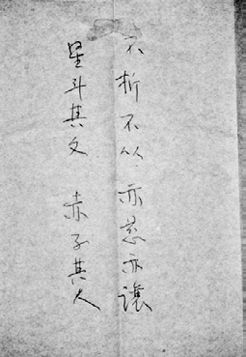 不折不从 亦慈亦讓
星斗其文 赤子其人